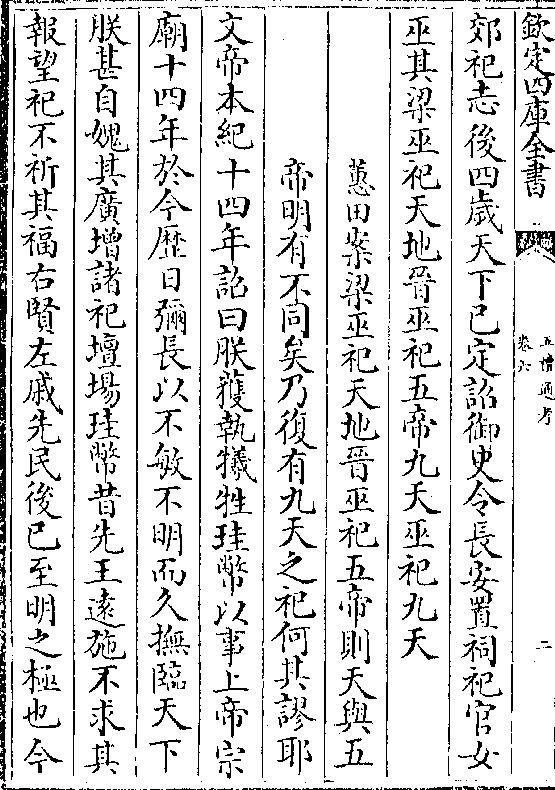 欽定四庫全書
五禮通考
卷六
二
郊祀志後四歲天下已定詔御史令長安置祠祀官女
巫其梁巫祀天地晉巫祀五帝九天巫祀九天
蕙田案梁巫祀天地晉巫祀五帝則天與五
帝明有不同矣乃復有九天之祀何其謬耶
文帝本紀十四年詔曰朕獲執犧牲珪幣以事上帝宗
廟十四年於今歷日彌長以不敏不明而久撫臨天下
朕甚自媿其廣增諸祀壇場珪幣昔先王遠施不求其
報望祀不祈其福右賢左戚先民後已至明之極也今